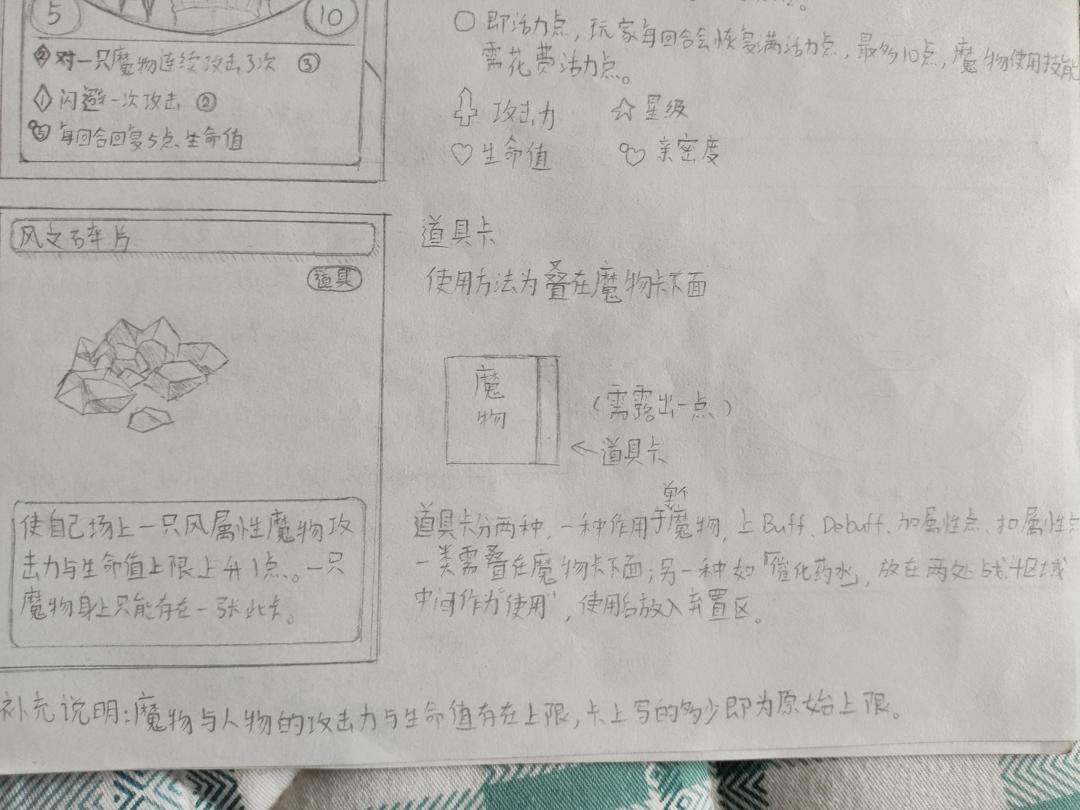 5
10
对一只魔物连续攻击3次 ③
闪避一次攻击 ②
每回合回复5点生命值
○即活力点，玩家每回合会恢复满活力点，最多10点，魔物使用技能
需花费活力点。
攻击力 ☆星级
♡生命值 亲密度
风之碎片
道具
使自己场上一只风属性魔物攻
击力与生命值上限上升1点。一只
魔物身上只能存在一张此卡。
道具卡
使用方法为叠在魔物卡下面
魔
物
（需露出一点）
←道具卡
道具卡分两种，一种作用于魔物，上Buff、Debuff、加属性点、扣属性点
一类需叠在魔物卡下面；另一种如「催化药水」，放在两处战斗区域
中间作为“使用”，使用后放入弃置区。
补充说明：魔物与人物的攻击力与生命值存在上限，卡上写的多少即为原始上限。